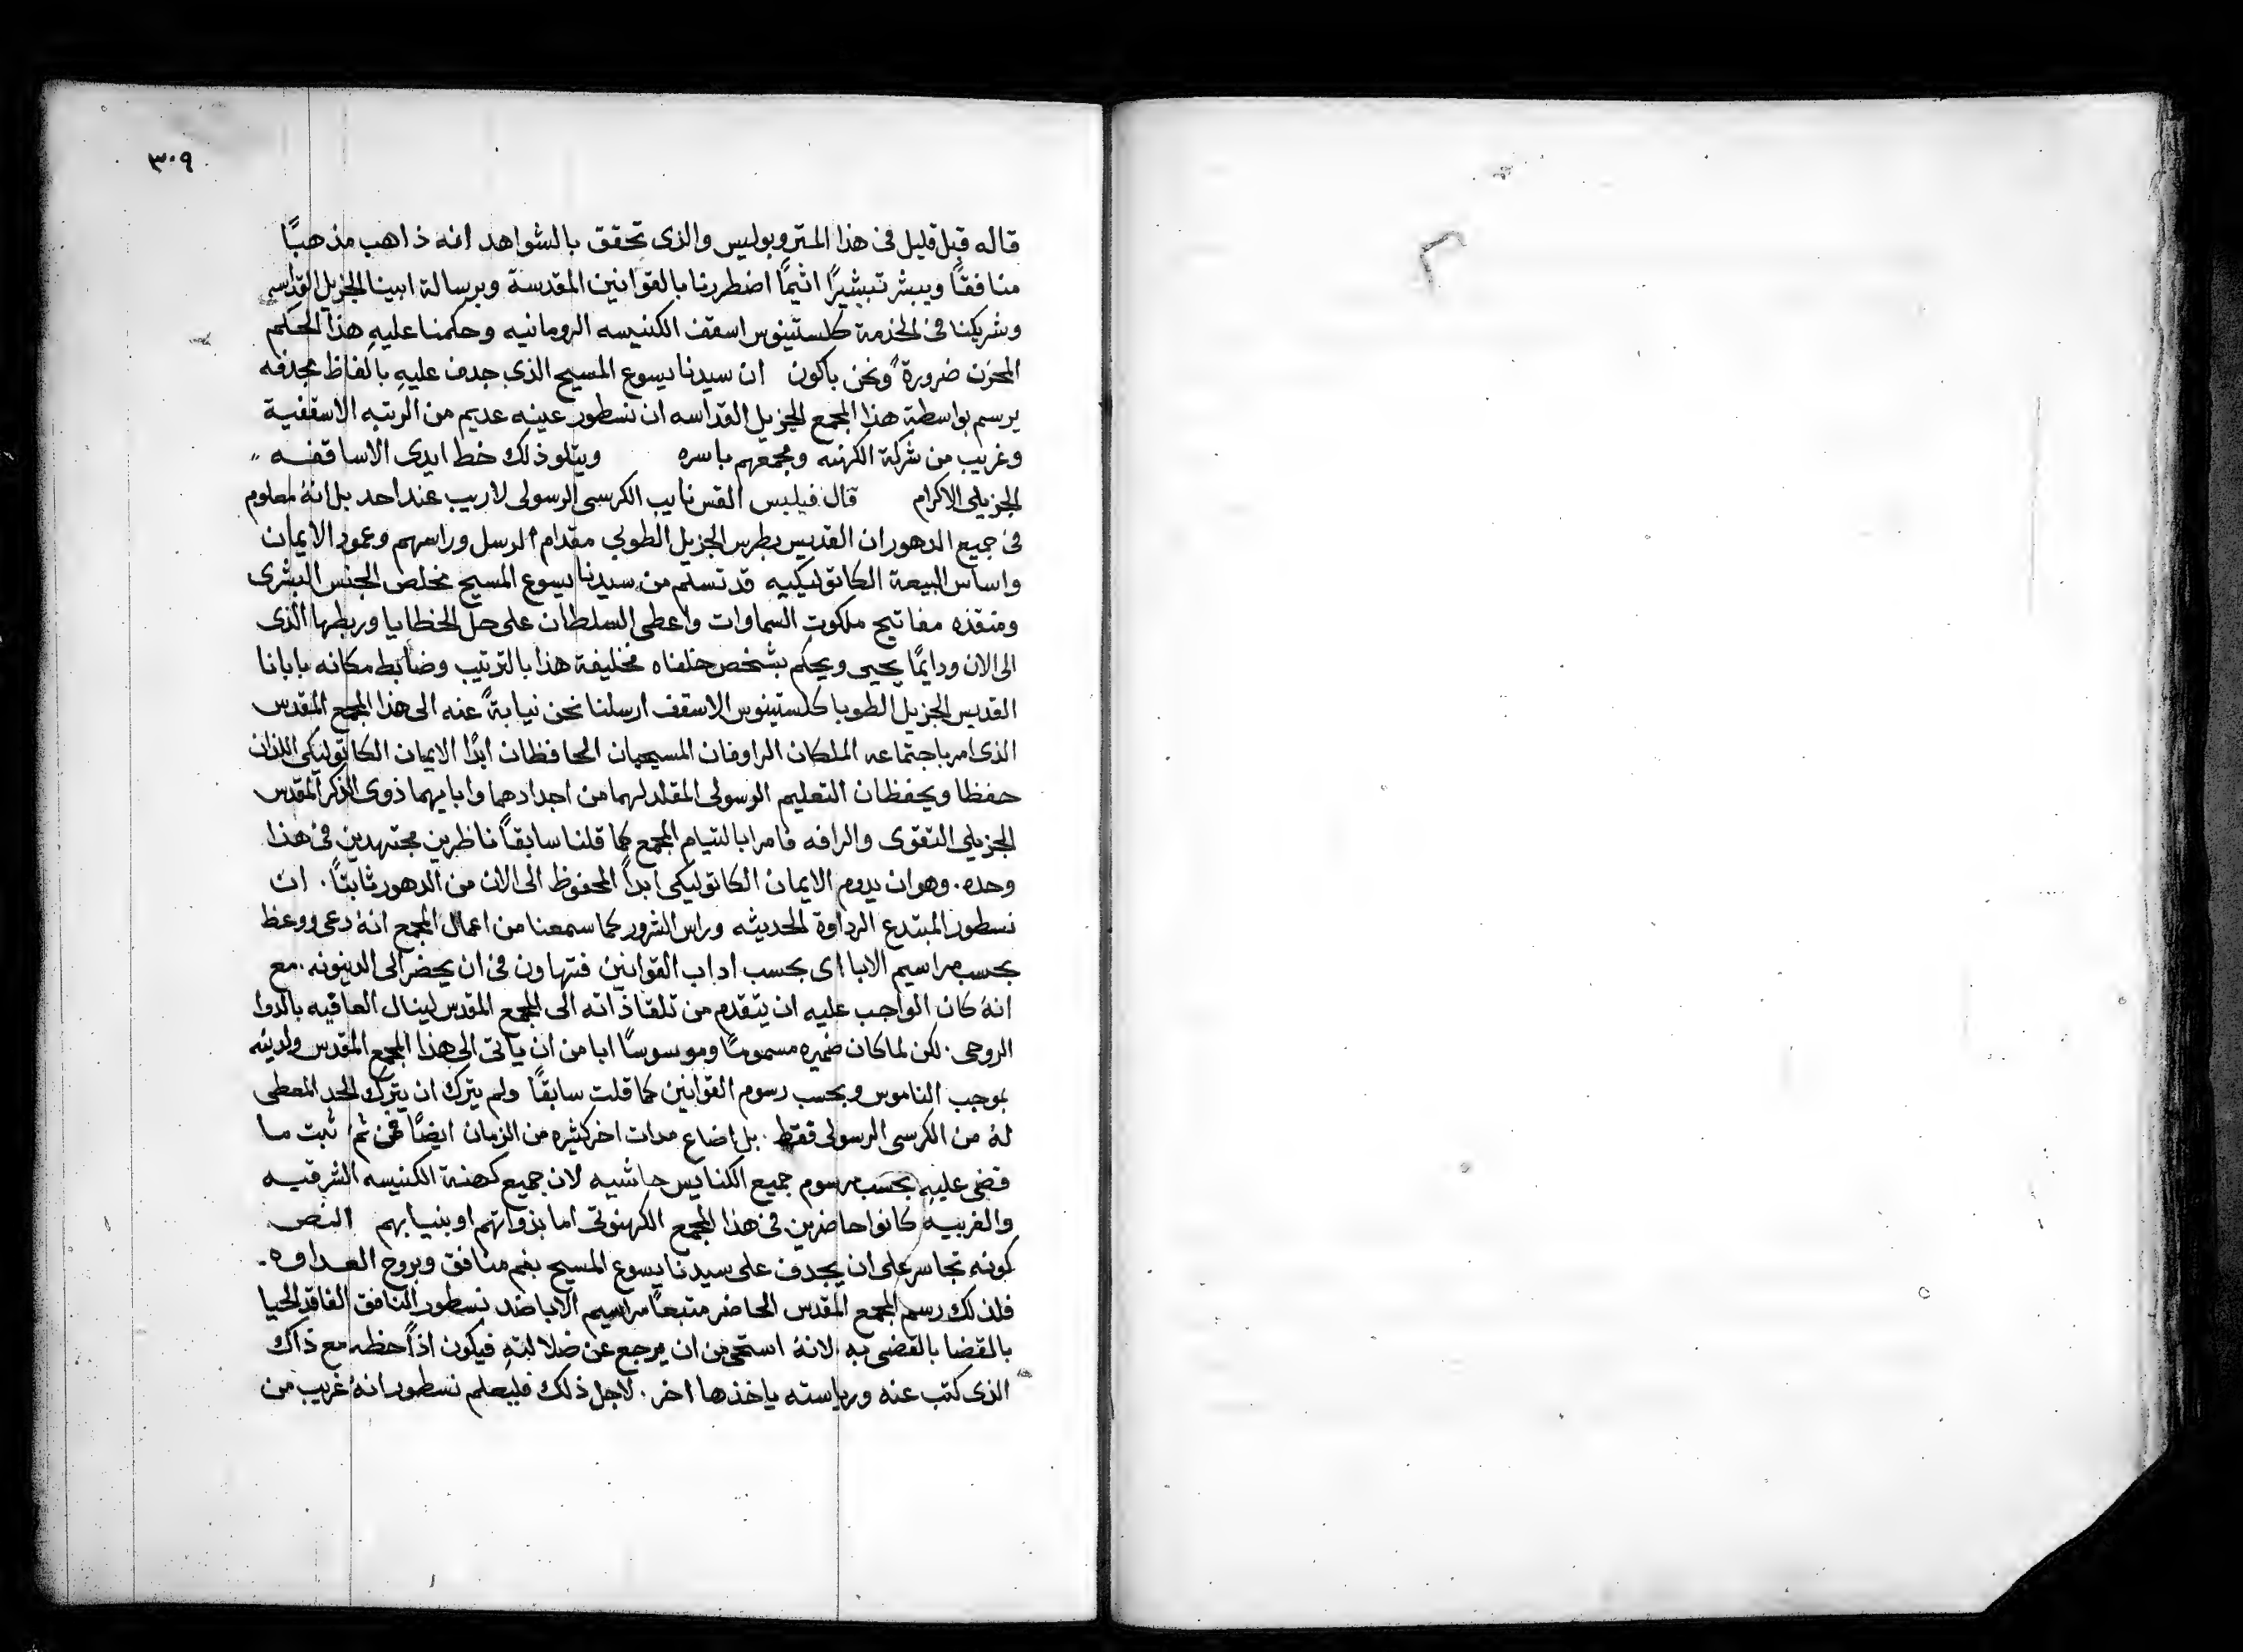 ٣٠٩
قاله قبل قليل فى هذا المتروبوليس والذى تحقق بالشواهد انه ذاهب مذهبًا
منافقًا ويبشر تبشيرًا اثيمًا اضطررنا بالقوانين المقدسة وبرسالة ابينا الجزيل القداسه
وشريكنا فى الخدمة كلستينوس اسقف الكنيسه الرومانيه وحكمنا عليهِ هذا الحكم
المحزن ضرورةً ونحن باكون ان سيدنا يسوع المسيح الذى جدف عليهِ بالفاظ مجدفه
يرسم بواسطة هذا المجمع الجزيل القداسه ان نسطور عينه عديم من الرتبه الاسقفية
وغريب من شركة الكهنه ومجمعهم باسره ويتلو ذلك خط ايدى الاساقفه
الجزيلى الاكرام قال فيلبس القس نايب الكرسى الرسولى لاريب عند احد بل انهُ معلوم
فى جميع الدهور ان القديس بطرس الجزيل الطوبى مقدام الرسل وراسهم وعمود الايمان
واساس البيعة الكاتوليكيه قد تسلم من سيدنا يسوع المسيح مخلص الجنس البشرى
ومنقذه مفاتيح ملكوت السماوات واعطى السلطان على حل الخطايا وربطها الذى
الى الان ودايمًا يحيى ويحكم بشخص خلفاه فخليفة هذا بالترتيب وضابط مكانه بابانا
القديس الجزيل الطوبا كلستينوس الاسقف ارسلنا نحن نيابةً عنه الى هذا المجمع المقدس
الذى امر باجتماعه الملكان الراوفان المسيحيان الحافظان ابدًا الايمان الكاتوليكى اللذان
حفظا ويحفظان التعليم الرسولى المقلد لهما من اجدادهما وابايهما ذوى الذكر المقدس
الجزيلى التقوى والرافه فامرا بالتيام المجمع كما قلنا سابقًا ناظرين مجتهدين فى هذا
وحده. وهو ان يدوم الايمان الكاتوليكى ابدًا المحفوظ الى الان من الدهور ثابتًا. ان
نسطور المبتدع الرداوة الحديثه وراس الشرور كما سمعنا من اعمال المجمع انهُ دعى ووعظ
بحسب مراسيم الابا اى بحسب اداب القوانين فتهاون فى ان يحضر الى الدينونه. مع
انهُ كان الواجب عليه ان يتقدم من تلقا ذاته الى المجمع المقدس لينال العافيه بالدوا
الروحى. لكن لما كان ضميره مسمومًا وموسوسًا ابا من ان ياتى الى هذا المجمع المقدس ولدينه
بموجب الناموس وبحسب رسوم القوانين كما قلت سابقًا ولم يترك ان يترك الحد المعطى
لهُ من الكرسى الرسولى فقط. بل اضاع مدات اخر كثيره من الزمان ايضًا فمن ثم ثبت ما
قضى عليهِ بحسب مرسوم جميع الكنايس حاشيه لان جميع كهنة الكنيسه الشرقيه
والغربيه كانوا حاضرين فى هذا المجمع الكهنوتى اما بذواتهم او بنيابهم النص
كونه تجاسر على ان يجدف على سيدنا يسوع المسيح بفم منافق وبروح العداوه.
فلذلك رسم المجمع المقدس الحاضر متبعًا مراسيم الابا ضد نسطور المنافق الفاقد الحيا
بالقضا بالقضى به لانهُ استحى من ان يرجع عن ضلالتهِ فيكون اذًا حظه مع ذاك
الذى كتب عنه ورياسته ياخذها اخر. لاجل ذلك فليعلم نسطور انهُ غريب من